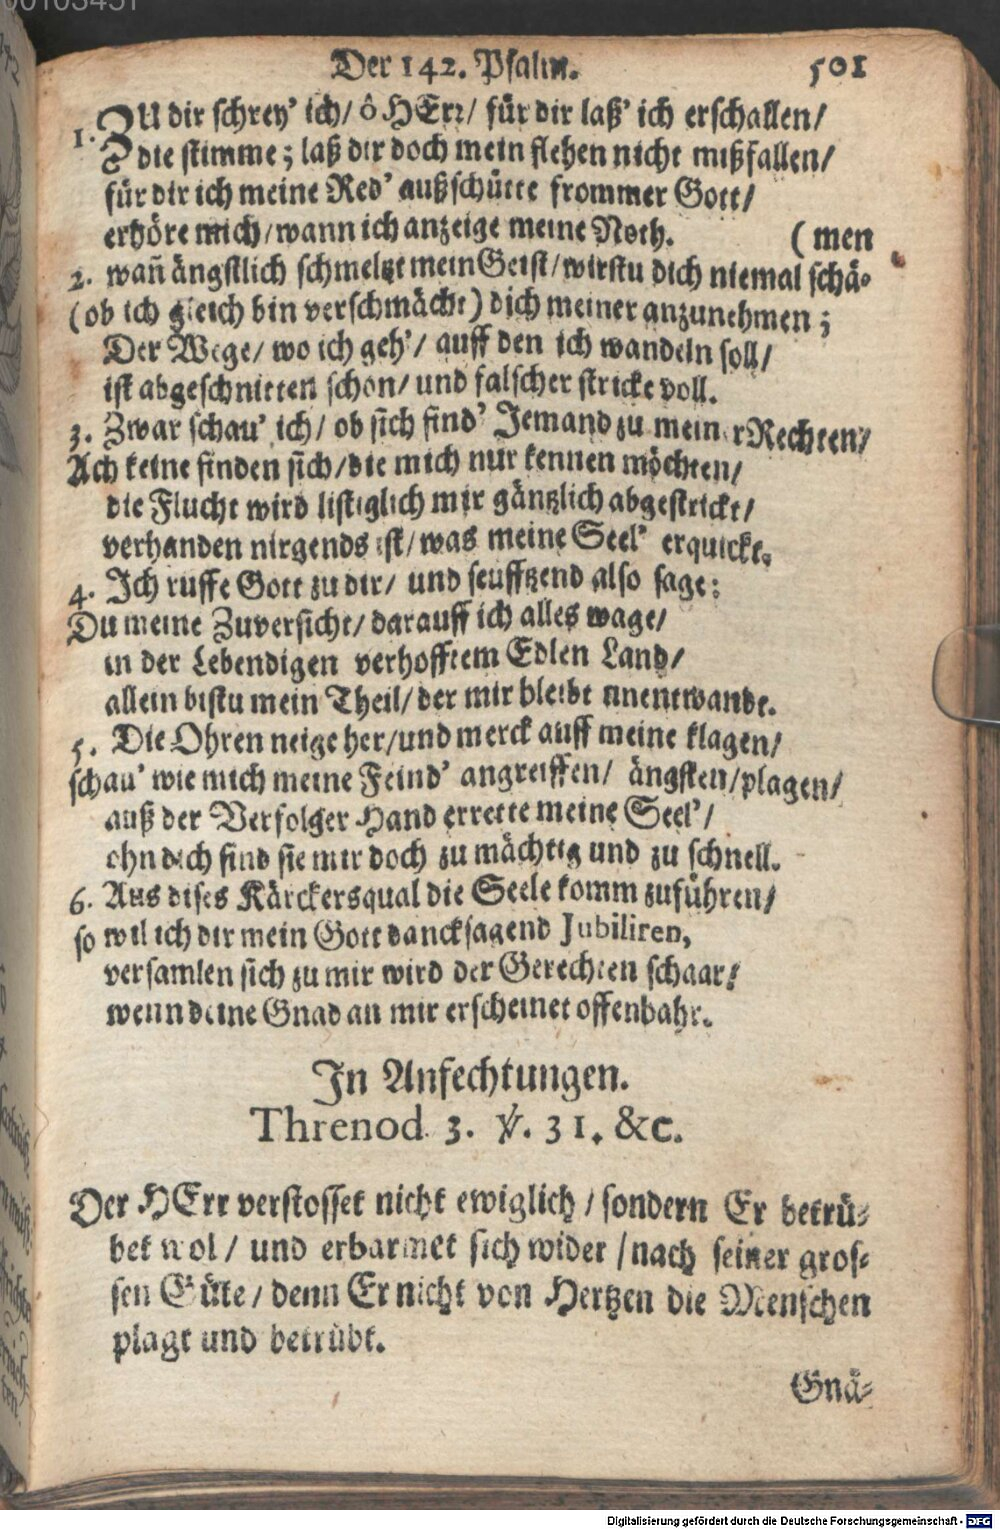 Der 142. Psalm. 501
1. ZU dir schrey' ich/ ô HErr/ für dir laß' ich erschallen/
die stimme; laß dir doch mein flehen nicht mißfallen/
für dir ich meine Red' außschütte frommer Gott/
erhöre mich/wann ich anzeige meine Noth. (men
2. wañ ängstlich schmeltzt mein Geist/wirstu dich niemal schä⸗
(ob ich gleich bin verschmächt) dich meiner anzunehmen;
Der Wege/ wo ich geh'/ auff den ich wandeln soll/
ist abgeschnitten schon/ und falscher stricke voll.
3. Zwar schau' ich/ ob sich find' Jemand zu meiner Rechten/
Ach keine finden sich/die mich nur kennen möchten/
die Flucht wird listiglich mir gäntzlich abgestrickt/
verhanden nirgends ist/was meine Seel' erquickt.
4. Ich ruffe Gott zu dir/ und seufftzend also sage:
Du meine Zuversicht/darauff ich alles wage/
in der Lebendigen verhofftem Edlen Land/
allein bistu mein Theil/der mir bleibt unentwandt.
5. Die Ohren neige her/und merck auff meine klagen/
schau' wie mich meine Feind' angreiffen/ ängsten/plagen/
auß der Verfolger Hand errette meine Seel'/
ohn dich sind sie mir doch zu mächtig und zu schnell.
6. Aus dises Kärckersqual die Seele komm zuführen/
so wil ich dir mein Gott dancksagend Jubiliren,
versamlen sich zu mir wird der Gerechten schaar/
wenn deine Gnad an mir erscheinet offenbahr.
In Anfechtungen.
Threnod. 3. ℣. 31. &c.
Der HErr verstosset nicht ewiglich/sondern Er betrü⸗
bet wol/ und erbarmet sich wider/nach seiner gros⸗
sen Güte/denn Er nicht von Hertzen die Menschen
plagt und betrübt.
Gnä⸗
Digitalisierung gefördert durch die Deutsche Forschungsgemeinschaft - DFG